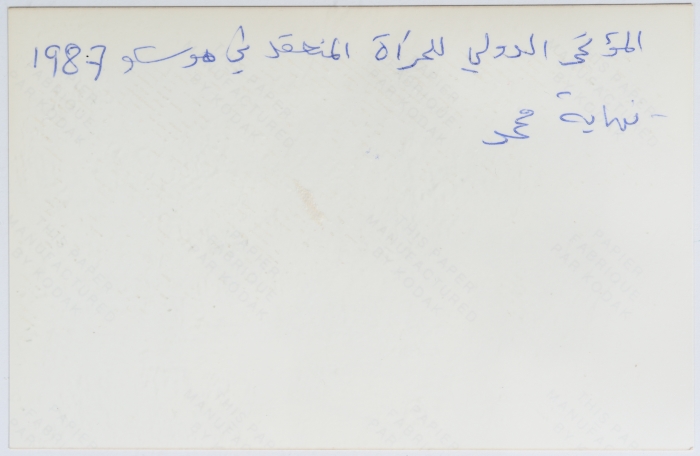 المؤتمر الدولي للمرأة المنعقد في موسكو 1987
- نهاية محمد